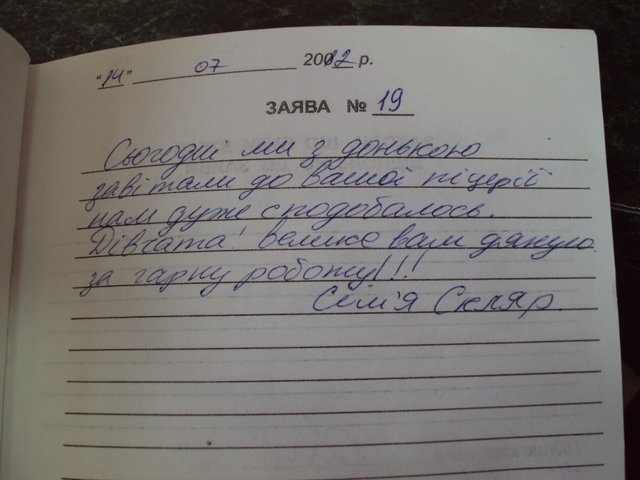 "14" 07 2012 р.
ЗАЯВА № 19
Сьогодні ми з донькою
завітали до вашої піцерії
нам дуже сподобалось.
Дівчата! велике вам дякую
за гарну роботу!!!
Сім'я Скляр.